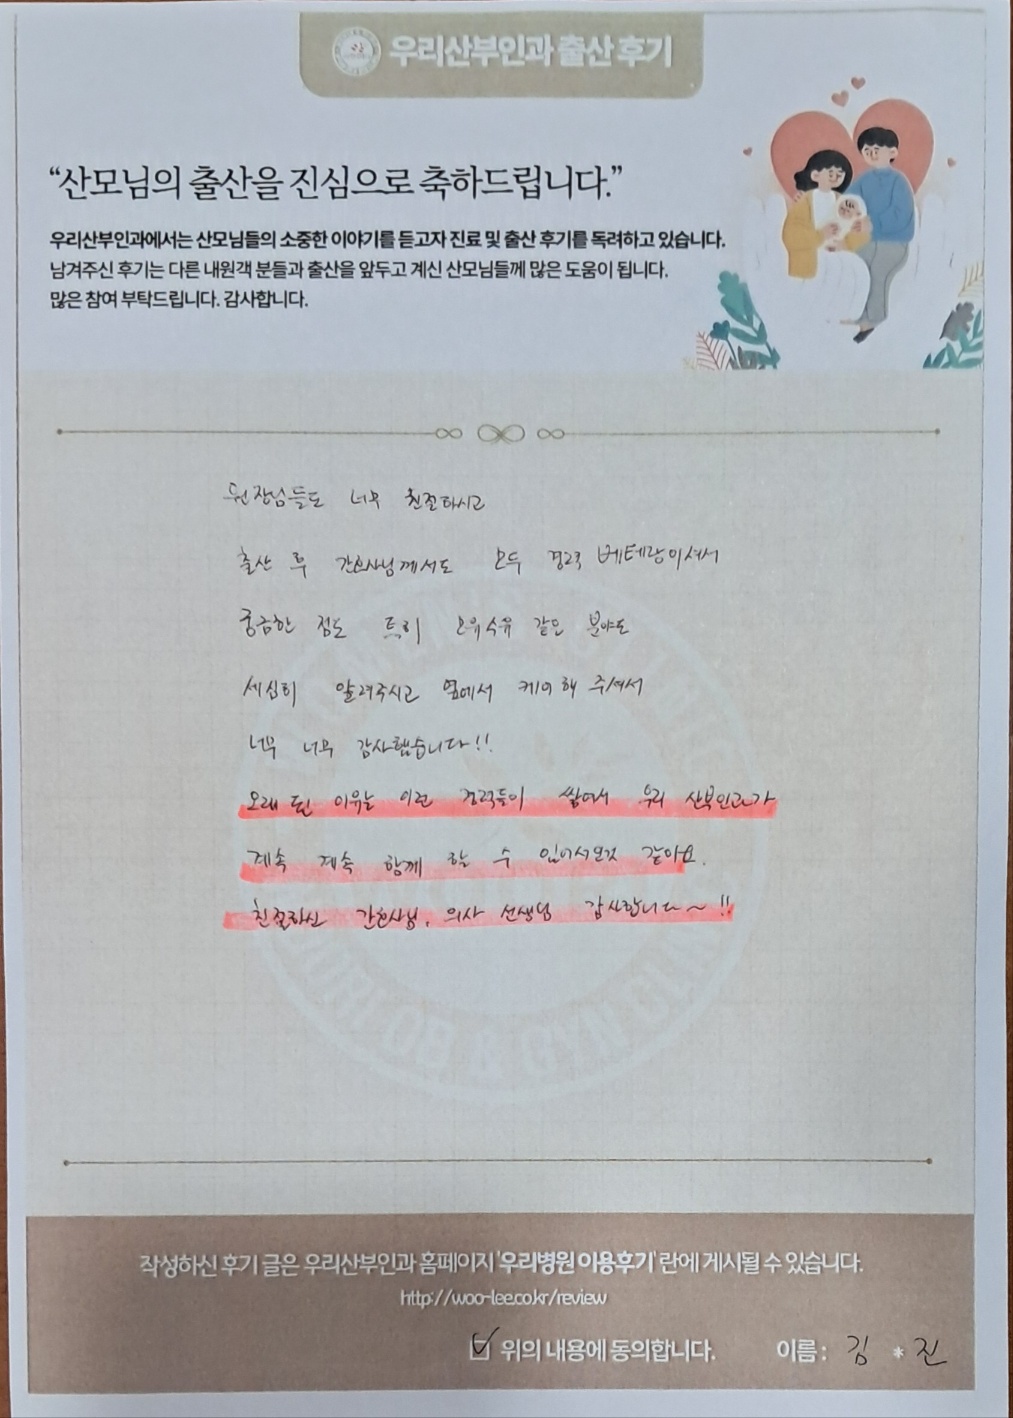 우리산부인과 출산 후기
“산모님의 출산을 진심으로 축하드립니다.”
우리산부인과에서는 산모님들의 소중한 이야기를 듣고자 진료 및 출산 후기를 독려하고 있습니다.
남겨주신 후기는 다른 내원객 분들과 출산을 앞두고 계신 산모님들께 많은 도움이 됩니다.
많은 참여 부탁드립니다. 감사합니다.
원장님들도 너무 친절하시고
출산 후 간호사님께서도 모두 경력 베테랑이셔서
궁금한 점도 특히 모유수유 같은 분야도
세심히 알려주시고 옆에서 케어해 주셔서
너무 너무 감사했습니다!!
오래 된 이유는 이런 경력들이 쌓여서 우리 산부인과가
계속 계속 함께 할 수 있어서 같아요.
친절하신 간호사님, 의사 선생님 감사합니다~!!
작성하신 후기 글은 우리산부인과 홈페이지 '우리병원 이용후기' 란에 게시될 수 있습니다.
http://woo-lee.co.kr/review
위의 내용에 동의합니다. 이름 : 김 * 진